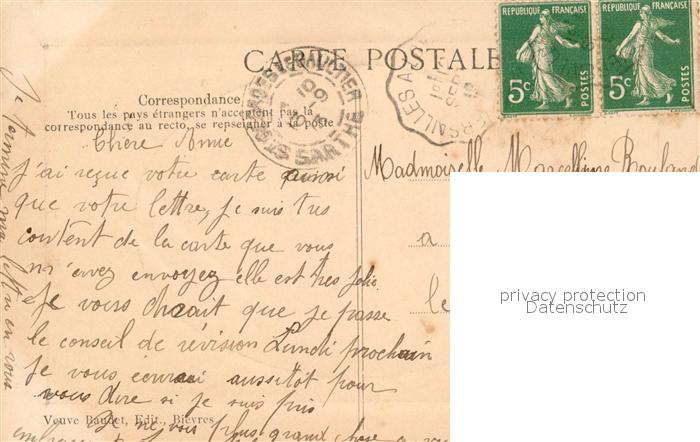 CARTE POSTALE
Correspondance
Tous les pays étrangers n'acceptent pas la
correspondance au recto, se renseigner à la poste
RÉPUBLIQUE FRANÇAISE
5c
RÉPUBLIQUE FRANÇAISE
5c
SARTHE
VERSAILLES A
Chère Amie
j'ai reçue votre carte aussi
que votre lettre, je suis tres
content de la carte que vous
m'avez envoyez elle est tres jolie
Je voirs dirait que je passe
le conseil de révision Lundi prochain
Je vous écrirai aussitôt pour
vous dire si je suis pris
Je ne vois plus grand chose a vous
embrasse
Veuve Baudet, Edit., Bièvres
Je termine ma lettre en vous
Madmoiselle Marcelline Rouland
a
le
privacy protection
Datenschutz